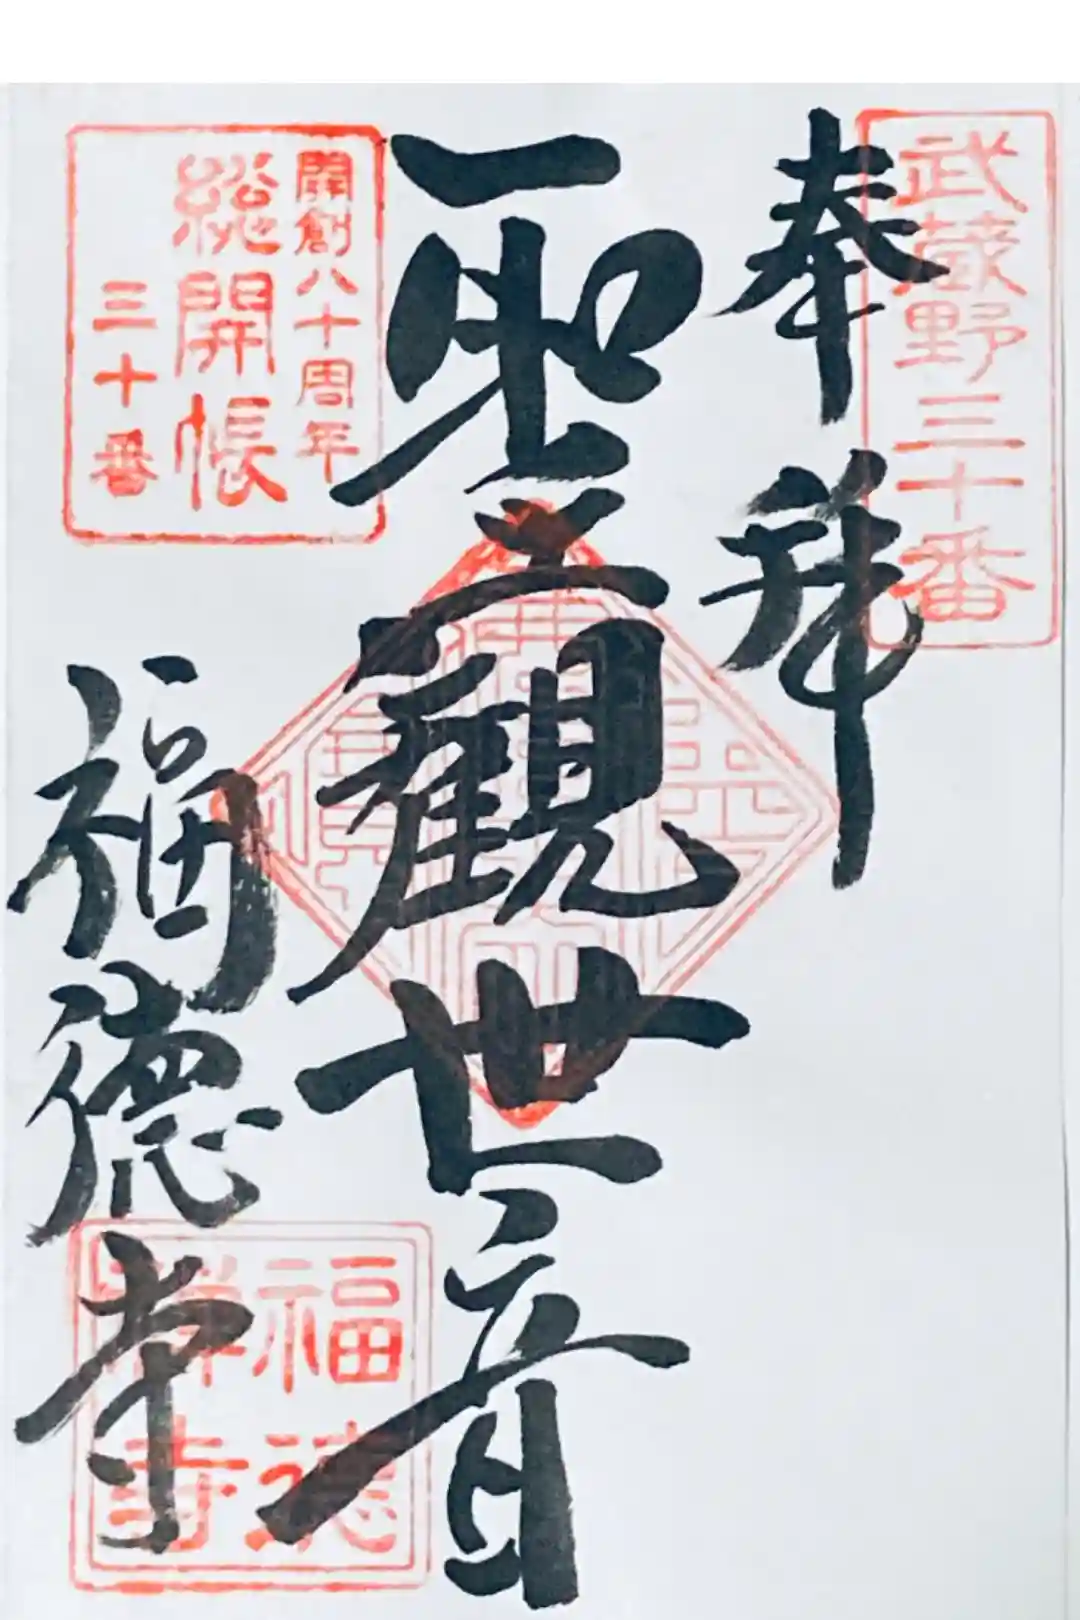 武蔵野三十番
奉拝
聖観世音
開創八十周年
総開帳
三十番
福徳寺
福徳
寺